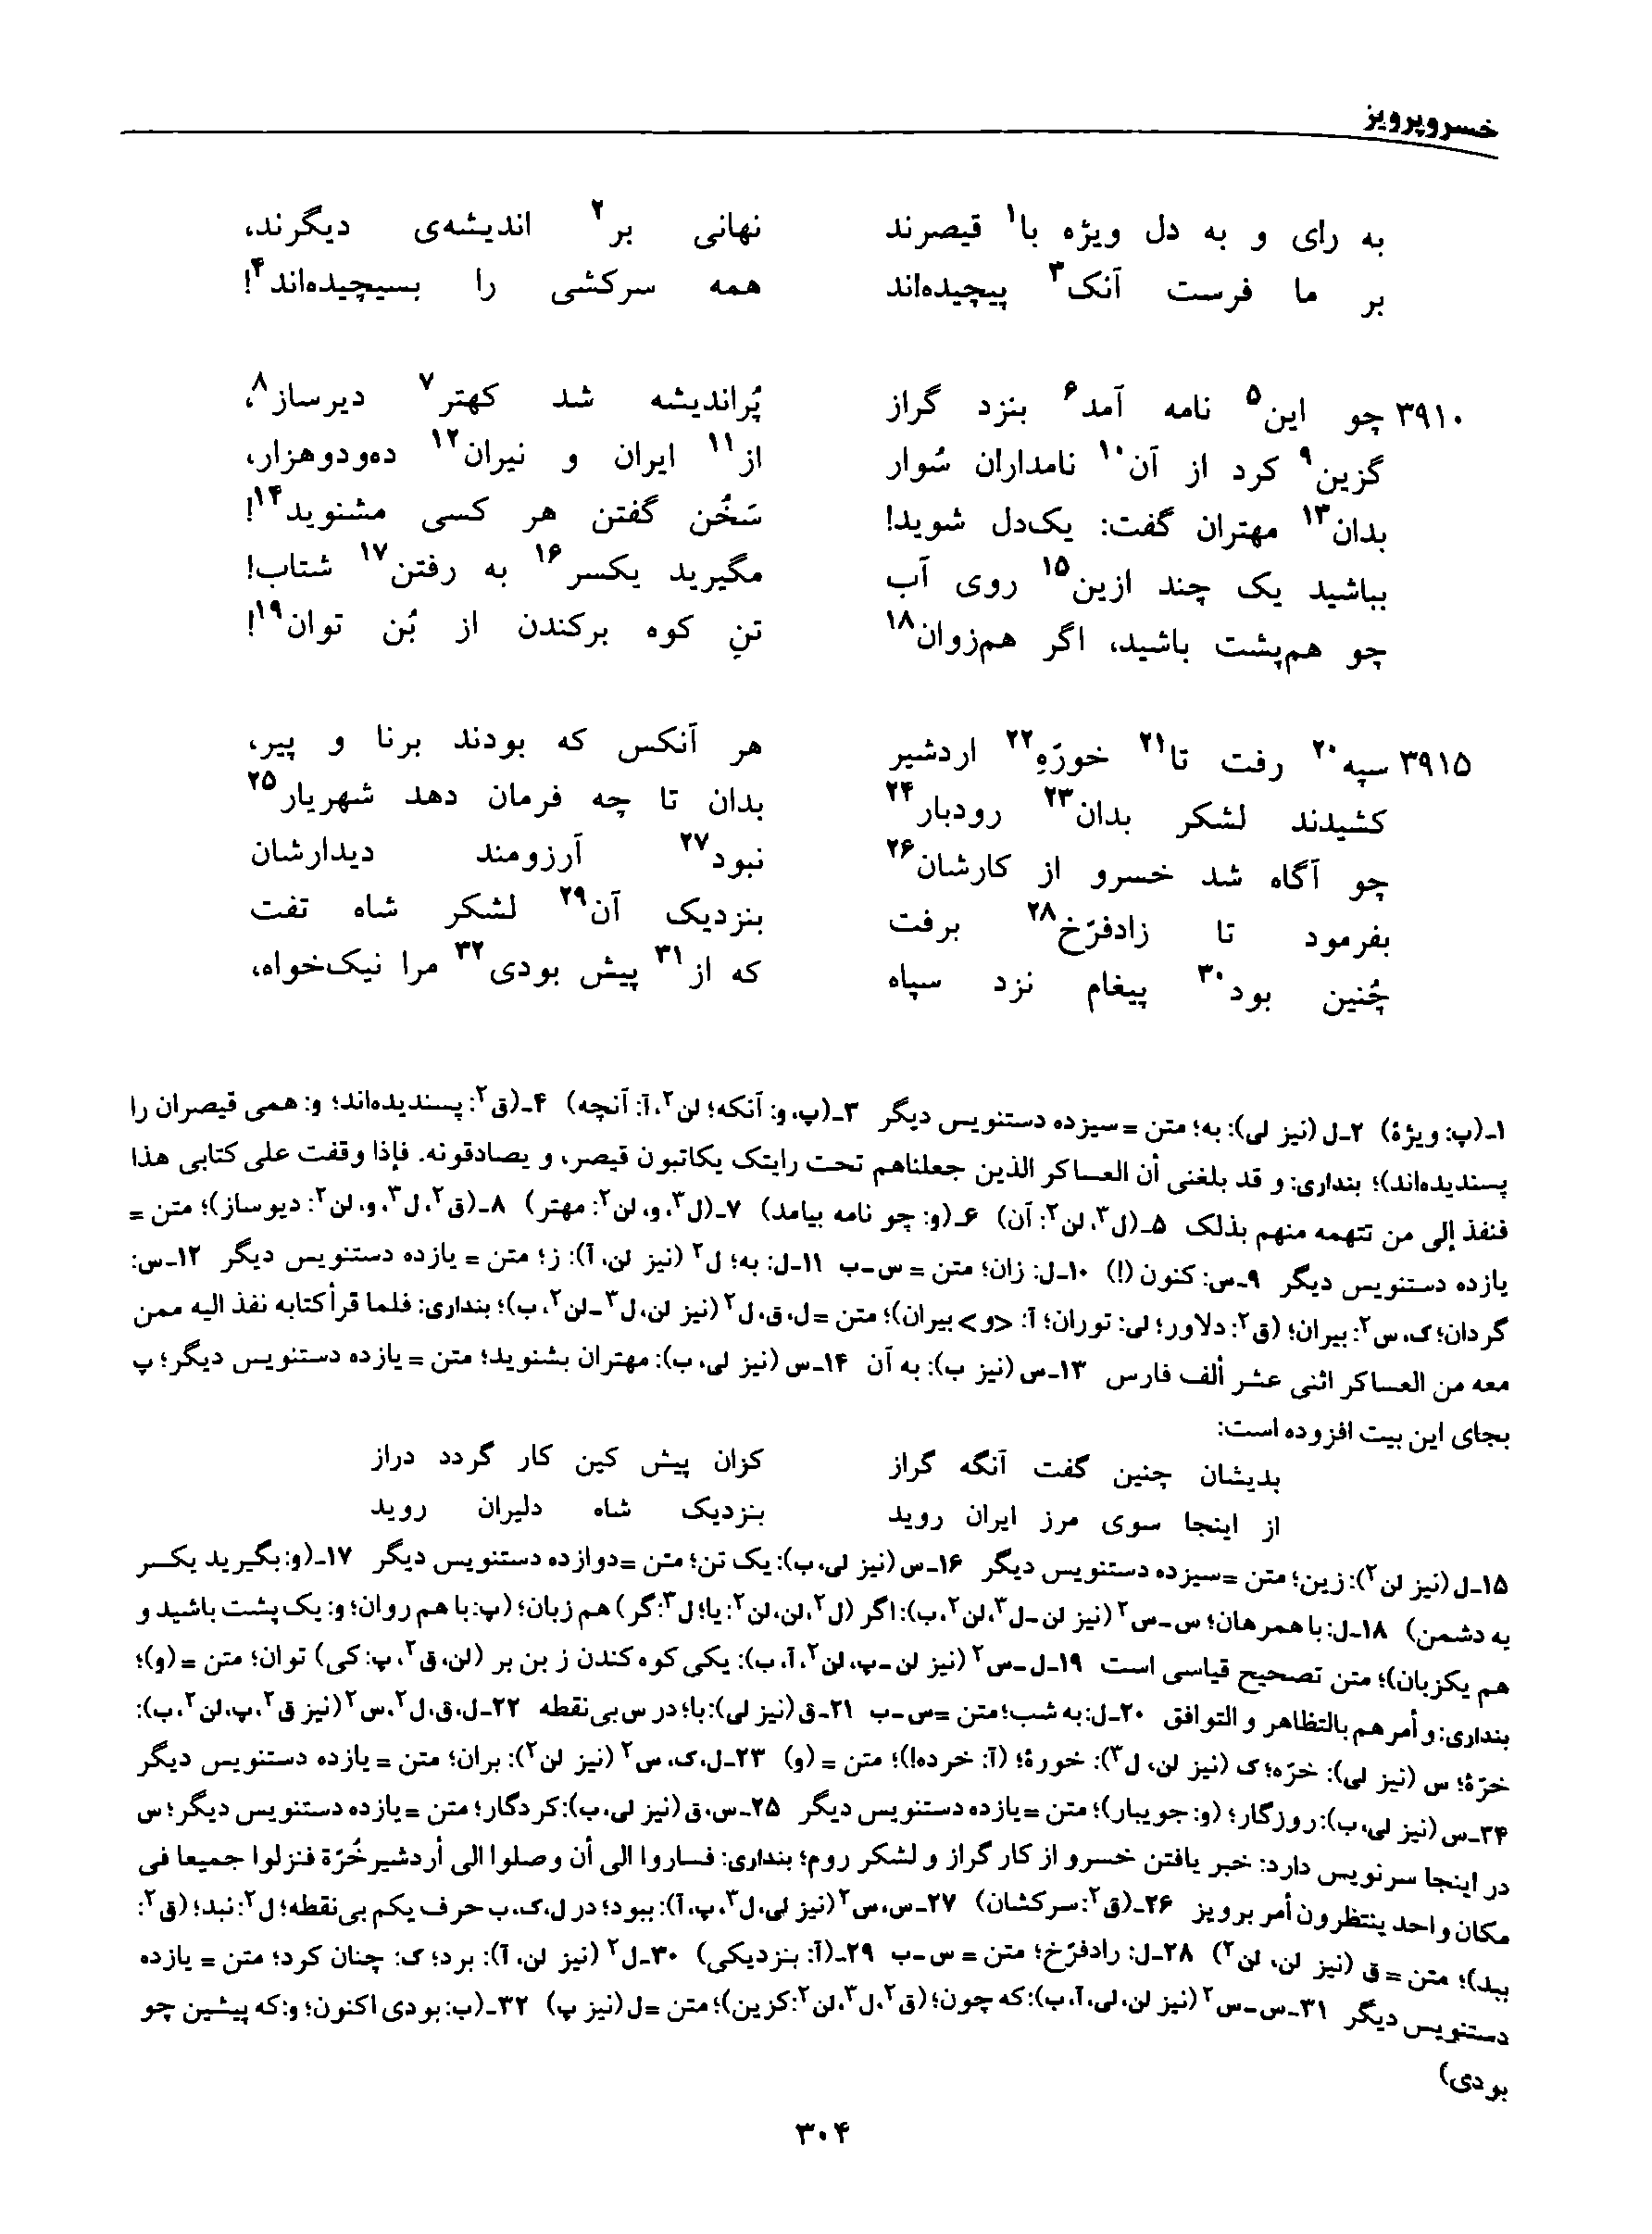 خسروپرویز
به رای و به دل ویژه با۱ قیصرند نهانی بر۲ اندیشه‌ی دیگرند،
بر ما فرست آنک۳ پیچیده‌اند همه سرکشی را بسیچیده‌اند۴!
۳۹۱۰ چو این۵ نامه آمد۶ بنزد گراز پُراندیشه شد کهتر۷ دیرساز۸،
گزین۹ کرد از آن۱۰ نامداران سُوار از۱۱ ایران و نیران۱۲ ده‌ودوهزار،
بدان۱۳ مهتران گفت: یک‌دل شوید! سَخُن گفتن هر کسی مشنوید۱۴!
بباشید یک چند ازین۱۵ روی آب مگیرید یکسر۱۶ به رفتن۱۷ شتاب!
چو هم‌پشت باشید، اگر هم‌زوان۱۸ تنِ کوه برکندن از بُن توان۱۹!
۳۹۱۵ سپه۲۰ رفت تا۲۱ خورّهِ۲۲ اردشیر هر آنکس که بودند برنا و پیر،
کشیدند لشکر بدان۲۳ رودبار۲۴ بدان تا چه فرمان دهد شهریار۲۵
چو آگاه شد خسرو از کارشان۲۶ نبود۲۷ آرزومند دیدارشان
بفرمود تا زادفرّخ۲۸ برفت بنزدیک آن۲۹ لشکر شاه تفت
چُنین بود۳۰ پیغام نزد سپاه که از۳۱ پیش بودی۳۲ مرا نیک‌خواه،
۱ـ(پ: ویژهٔ) ۲ـل (نیز لی): به؛ متن = سیزده دستنویس دیگر ۳ـ(پ، و: آنکه؛ لن۲، آ: آنچه) ۴ـ(ق۲: پسندیده‌اند؛ و: همی قیصران را
پسندیده‌اند)؛ بنداری: و قد بلغنی أن العساکر الذین جعلناهم تحت رایتک یکاتبون قیصر، و یصادقونه. فإذا وقفت علی کتابی هذا
فنفذ إلی من تتهمه منهم بذلک ۵ـ(ل۳، لن۲: آن) ۶ـ(و: چو نامه بیامد) ۷ـ(ل۳، و، لن۲: مهتر) ۸ـ(ق۲، ل۳، و، لن۲: دیوساز)؛ متن =
یازده دستنویس دیگر ۹ـس: کنون (!) ۱۰ـل: زان؛ متن = س-ب ۱۱ـل: به؛ ل۲ (نیز لن، آ): ز؛ متن = یازده دستنویس دیگر ۱۲ـس:
گردان؛ ک، س۲: بیران؛ (ق۲: دلاور؛ لی: توران؛ آ: <و> بیران)؛ متن =ل، ق، ل۲ (نیز لن، ل۳-لن۲، ب)؛ بنداری: فلما قرأ کتابه نفذ الیه ممن
معه من العساکر اثنی عشر ألف فارس ۱۳ـس (نیز ب): به آن ۱۴ـس (نیز لی، ب): مهتران بشنوید؛ متن = یازده دستنویس دیگر؛ پ
بجای این بیت افزوده است:
بدیشان چنین گفت آنگه گراز کزان پیش کین کار گردد دراز
از اینجا سوی مرز ایران روید بنزدیک شاه دلیران روید
۱۵ـل (نیز لن۲): زین؛ متن =سیزده دستنویس دیگر ۱۶ـس (نیز لی، ب): یک تن؛ متن =دوازده دستنویس دیگر ۱۷ـ(و: بگیرید یکسر
به دشمن) ۱۸ـل: با همرهان؛ س-س۲ (نیز لن-ل۳، لن۲، ب): اگر (ل۲، لن، لن۲: یا؛ ل۳: گر) هم زبان؛ (پ: با هم روان؛ و: یک پشت باشید و
هم یکزبان)؛ متن تصحیح قیاسی است ۱۹ـل-س۲ (نیز لن-پ، لن۲، آ، ب): یکی کوه کندن ز بن بر (لن، ق۲، پ: کی) توان؛ متن = (و)؛
بنداری: و أمرهم بالتظاهر و التوافق ۲۰ـل: به شب؛ متن =س-ب ۲۱ـق (نیز لی): با؛ در س بی‌نقطه ۲۲ـل، ق، ل۲، س۲ (نیز ق۲، پ، لن۲، ب):
خرّهٔ؛ س (نیز لی): خرّه؛ ک (نیز لن، ل۳): خورهٔ؛ (آ: خرده!)؛ متن = (و) ۲۳ـل، ک، س۲ (نیز لن۲): بران؛ متن = یازده دستنویس دیگر
۲۴ـس (نیز لی، ب): روزگار؛ (و: جویبار)؛ متن =یازده دستنویس دیگر ۲۵ـس، ق (نیز لی، ب): کردگار؛ متن =یازده دستنویس دیگر؛ س
در اینجا سرنویس دارد: خبر یافتن خسرو از کار گراز و لشکر روم؛ بنداری: فساروا الی أن وصلوا الی أردشیر خُرّة فنزلوا جمیعا فی
مکان واحد ینتظرون أمر برویز ۲۶ـ(ق۲: سرکشان) ۲۷ـس، س۲ (نیز لی، ل۳، پ، آ): ببود؛ در ل، ک، ب حرف یکم بی‌نقطه؛ ل۲: نبد؛ (ق۲:
ببد)؛ متن = ق (نیز لن، لن۲) ۲۸ـل: رادفرّخ؛ متن = س-ب ۲۹ـ(آ: بنزدیکی) ۳۰ـل۲ (نیز لن، آ): برد؛ ک: چنان کرد؛ متن = یازده
دستنویس دیگر ۳۱ـس-س۲ (نیز لن، لی، آ، ب): که چون؛ (ق۲، ل۳، لن۲: کزین)؛ متن =ل (نیز پ) ۳۲ـ(ب: بودی اکنون؛ و: که پیشین چو
بودی)
۳۰۴